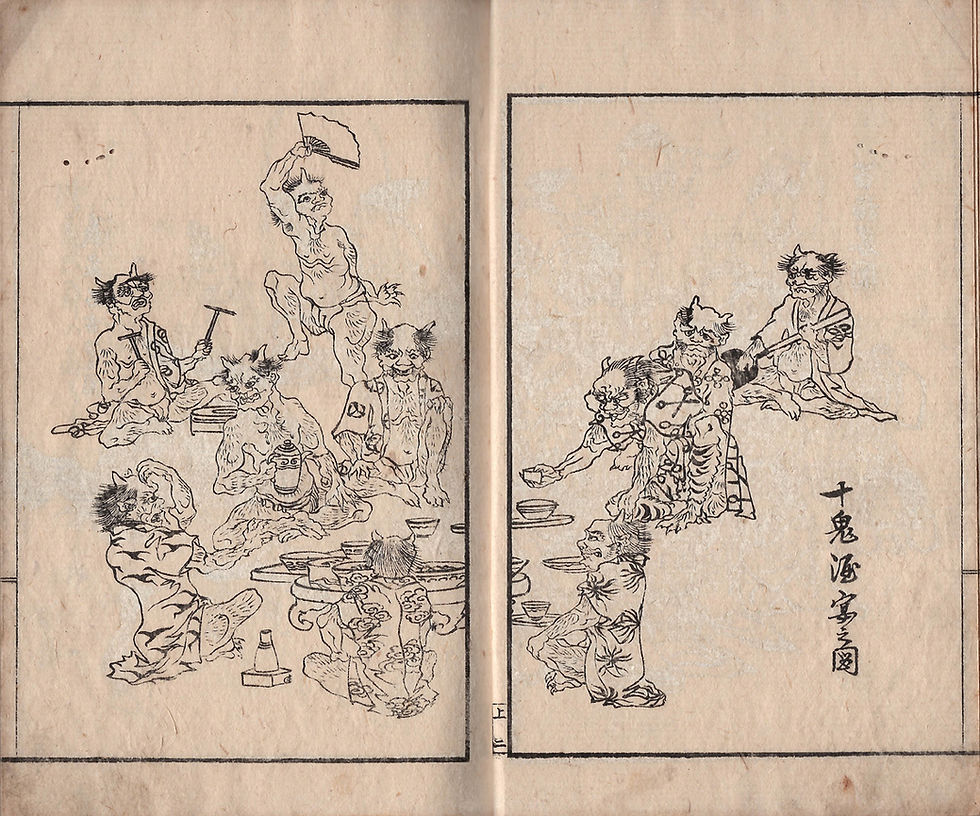 十鬼酒宴之図
上 二